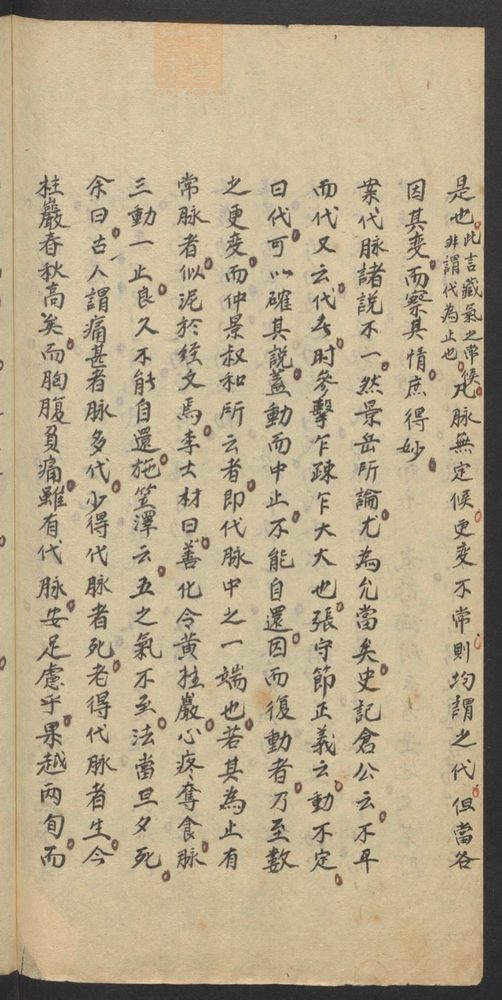 是也此言藏氣之常候非謂代為止也凡脉無定候更变不常則均謂之代但當各
因其変而察其情庶得妙
案代脉諸說不一然景岳所論尤為允當矣史記倉公云不平
而代又云代者时參擊乍疎乍大大也張守節正義云動不定
曰代可以確其說蓋動而中止不能自還因而復動者乃至數
之更変而仲景叔和所云者即代脉中之一端也若其為止有
常脉者似泥於經文焉李士材曰善化令黄桂巖心疼奪食脉
三動一止良久不能自還施笠澤云五之氣不至法當旦夕死
余曰古人謂痛甚者脉多代少得代脉者死老得代脉者生今
桂巖春秋高矣而胸腹負痛雖有代脉安足慮乎果越兩旬而